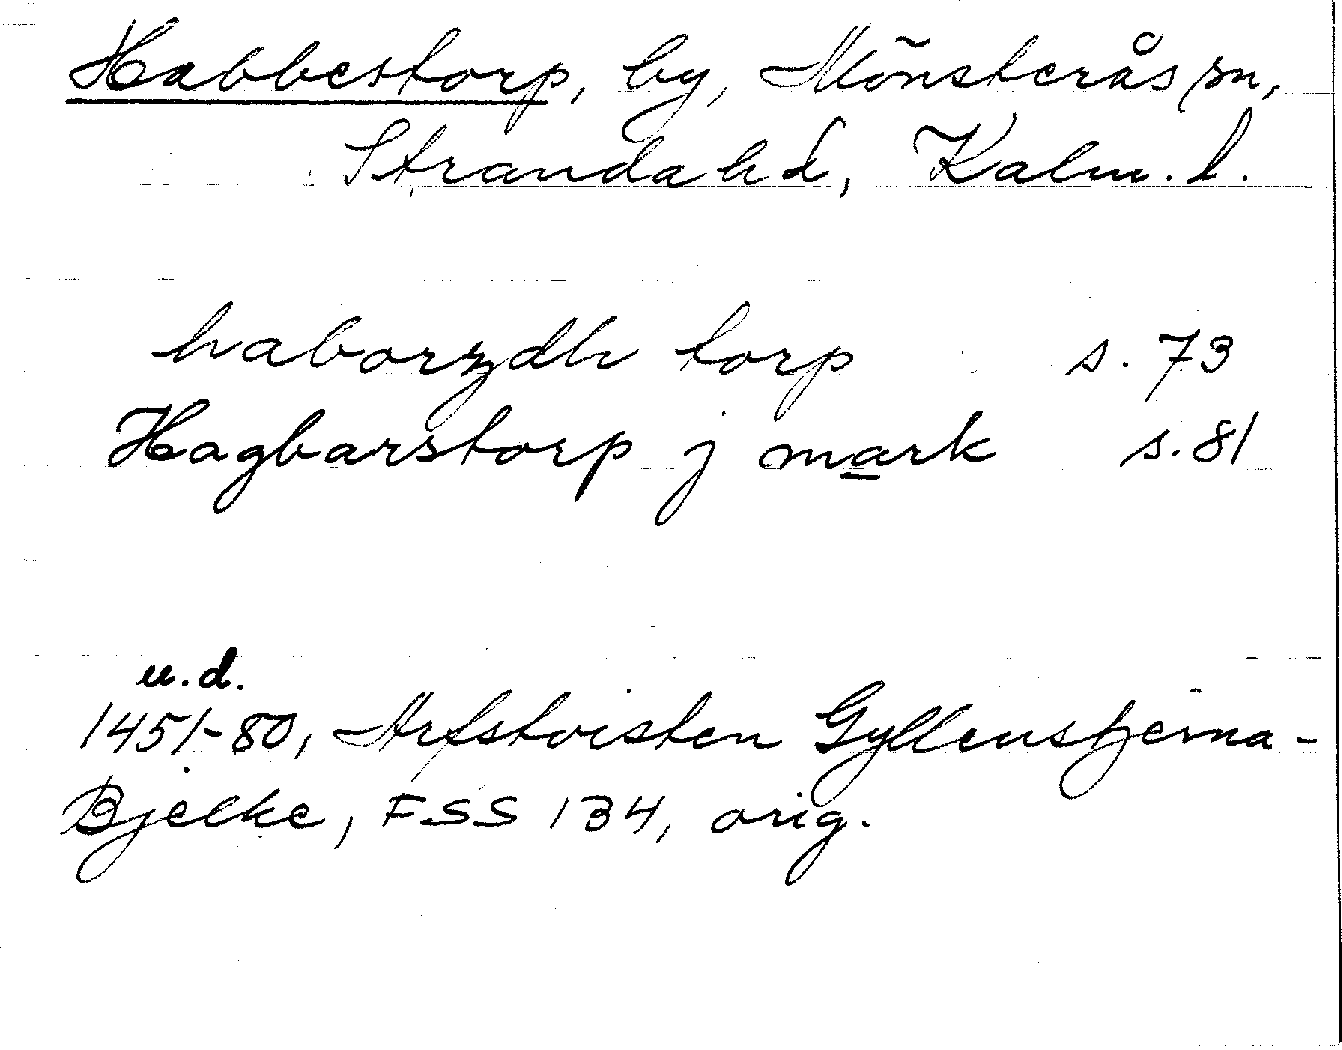 Habbestorp, by, Mönsterås sn,
Stranda hd, Kalm. l.
haborzdh torp s. 73
Hagbarstorp j mark s. 81
u.d.
1451-80, Arfstvisten Gyllenstjerna-
Bjelke, FSS 134, orig.